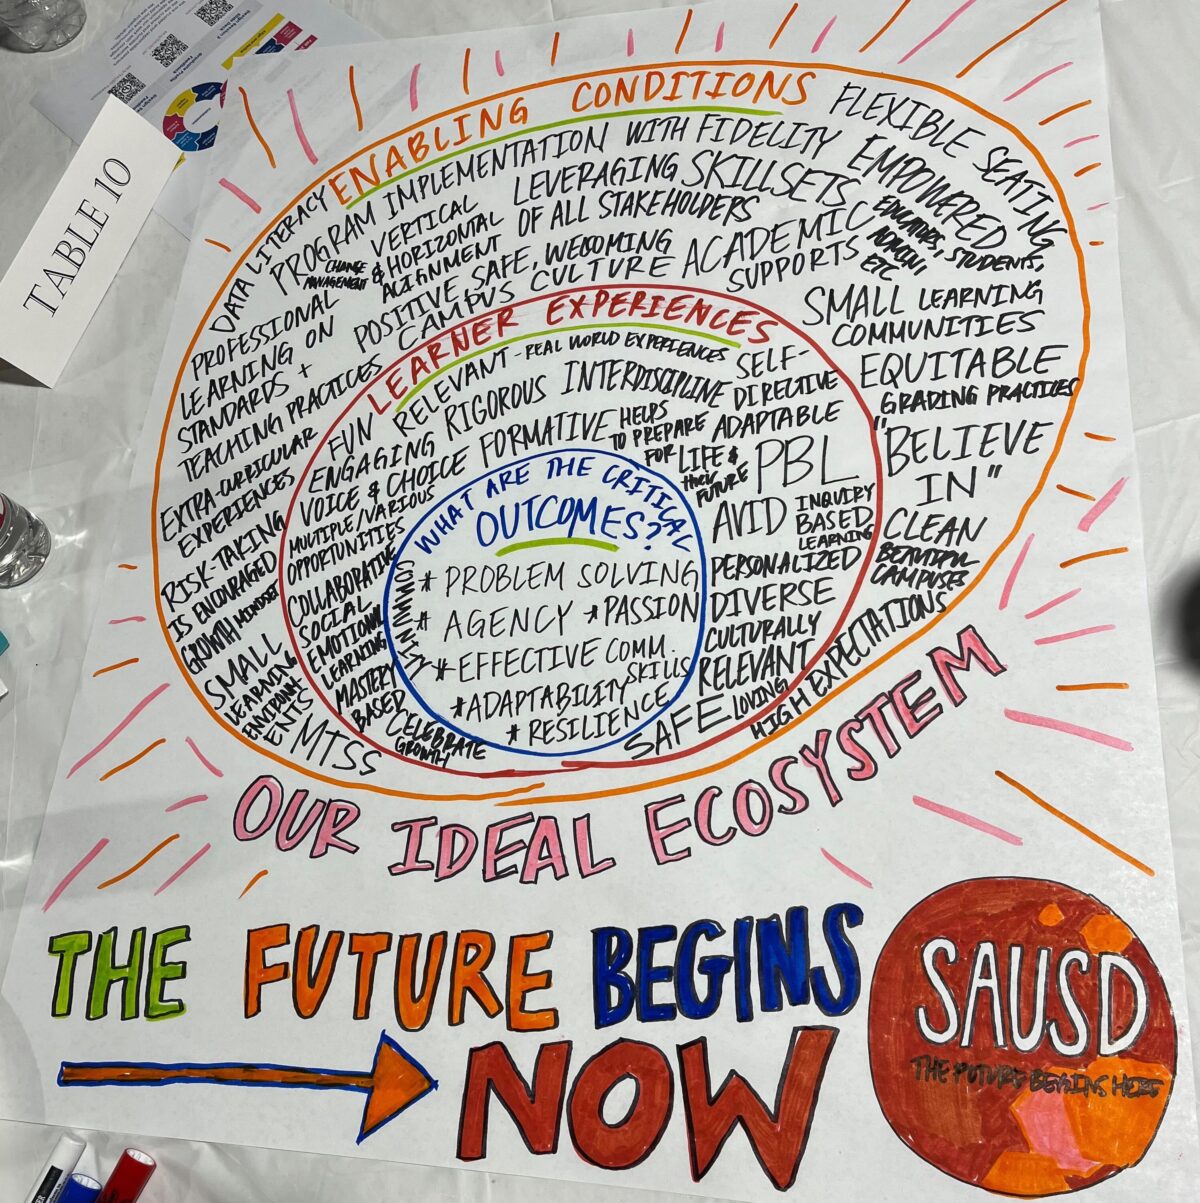 TABLE 10
ENABLING CONDITIONS
DATA LITERACY
PROGRAM IMPLEMENTATION WITH FIDELITY
FLEXIBLE SEATING
CHANGE
MANAGEMENT
VERTICAL
& HORIZONTAL
ALIGNMENT
LEVERAGING SKILLSETS
OF ALL STAKEHOLDERS
EMPOWERED
EDUCATORS, STUDENTS,
ADMIN,
ETC
PROFESSIONAL
LEARNING ON
STANDARDS +
TEACHING PRACTICES
POSITIVE, SAFE, WELCOMING
CAMPUS CULTURE
ACADEMIC
SUPPORTS
SMALL LEARNING
COMMUNITIES
EQUITABLE
GRADING PRACTICES
"BELIEVE
IN"
CLEAN
BEAUTIFUL
CAMPUSES
HIGH EXPECTATIONS
EXTRA-CURRICULAR
EXPERIENCES
RISK-TAKING
IS ENCOURAGED
GROWTH MINDSET
SMALL
LEARNING
ENVIRONM-
ENTS
MTSS
LEARNER EXPERIENCES
FUN
RELEVANT - REAL WORLD EXPERIENCES
ENGAGING
RIGOROUS
INTERDISCIPLINE
SELF-
DIRECTIVE
VOICE & CHOICE
FORMATIVE
HELPS
TO PREPARE
FOR LIFE &
their
FUTURE
ADAPTABLE
PBL
MULTIPLE/VARIOUS
OPPORTUNITIES
AVID
INQUIRY
BASED
LEARNING
COLLABORATIVE
SOCIAL
EMOTIONAL
LEARNING
PERSONALIZED
DIVERSE
CULTURALLY
RELEVANT
MASTERY
BASED
CELEBRATE
GROWTH
SAFE
LOVING
WHAT ARE THE CRITICAL
OUTCOMES?
* PROBLEM SOLVING
* AGENCY * PASSION
* EFFECTIVE COMM.
SKILLS
* ADAPTABILITY
* RESILIENCE
OUR IDEAL ECOSYSTEM
THE FUTURE BEGINS
NOW
SAUSD
THE FUTURE BEGINS HERE